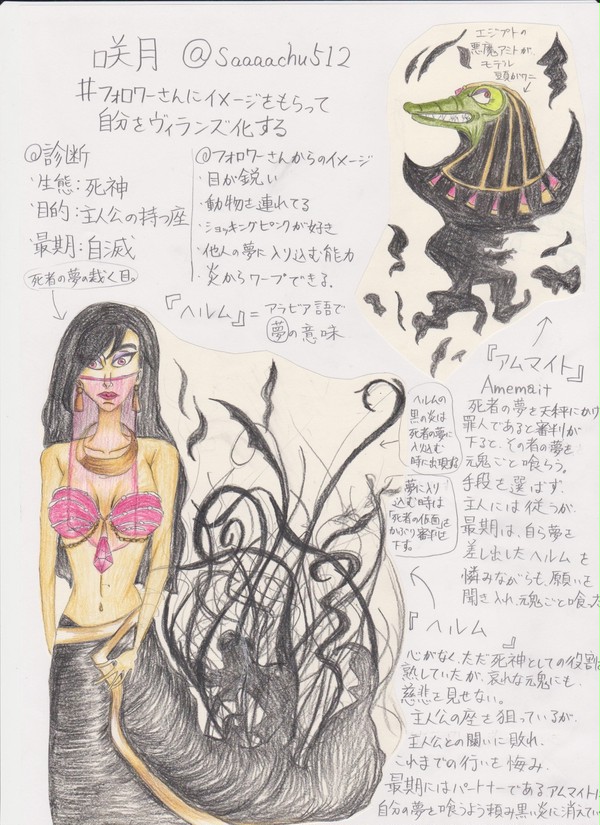 咲月 @Saaaachu512
#フォロワーさんにイメージをもらって
自分をヴィランズ化する
@診断
・生態:死神
・目的:主人公の持つ座
・最期:自滅
死者の夢の裁く目。
@フォロワーさんからのイメージ
・目が鋭い
・動物を連れてる
・ショッキングピンクが好き
・他人の夢に入り込む能力
・炎からワープできる。
『ヘルム』=アラビア語で
夢の意味
エジプトの
悪魔アミトが
モデル
頭がワニ
『アムマイト』
Amemait
死者の夢を天秤にかけ
罪人であると審判が
下ると、その者の夢を
元魂ごと喰らう。
手段を選ばず、
主人には従うが、
最期は、自ら夢を
差し出したヘルムを
憐みながらも、願いを
聞き入れ、元魂ごと喰った
ヘルムの
黒の炎は
死者の夢に
入り込む
時に出現する
夢に入り
込む時は
「死者の仮面」を
かぶり審判を
下す。
『ヘルム』
心がなく、ただ死神としての役割に
熟していたが、哀れな元魂にも
慈悲を見せない。
主人公の座を狙っているが、
主人公との闘いに敗れ、
これまでの行いを悔み、
最期にはパートナーであるアムマイトに
自分の夢を喰うよう頼み黒い炎に消えてい